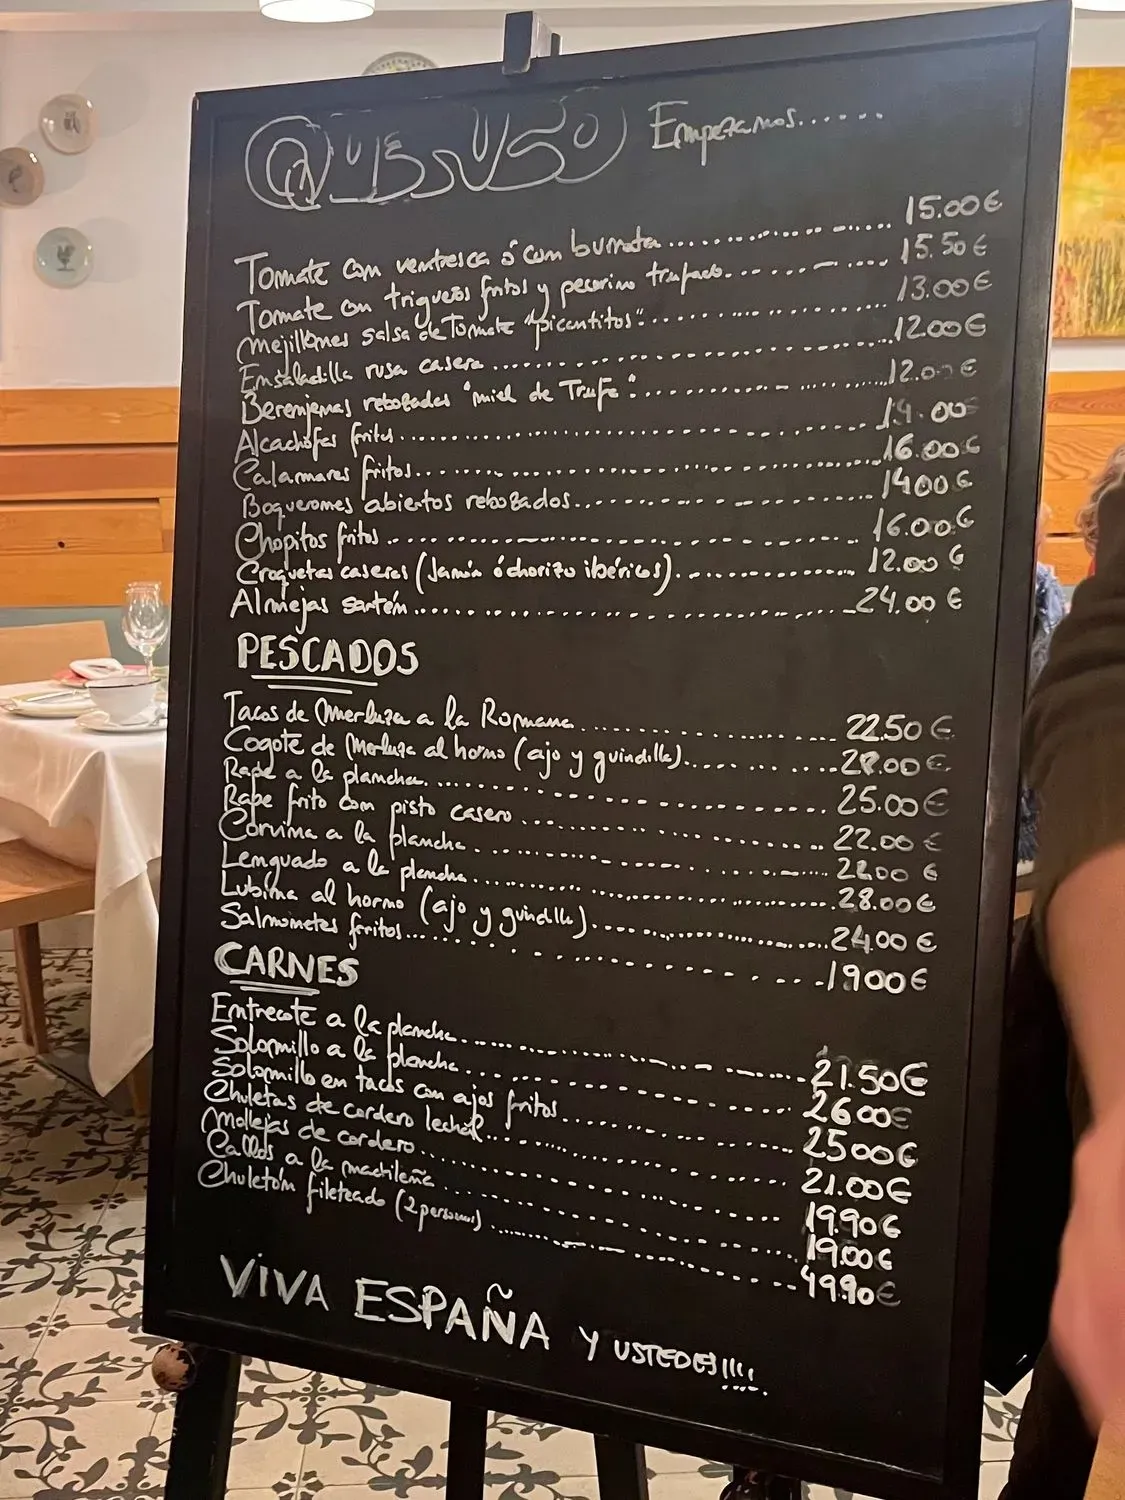 QUESUSO Empezamos......
Tomate con ventresca ó con burrata 15.00€
Tomate con trigueros fritos y pecorino trufado 15.50€
Mejillones salsa de Tomate "picantitos" 13.00€
Ensaladilla rusa casera 12.00€
Berenjenas rebozadas "miel de Trufa" 12.00€
Alcachofas fritas 14.00
Calamares fritos 16.00€
Boquerones abiertos rebozados 14.00€
Chopitos fritos 16.00€
Croquetas caseras (Jamón ó chorizo ibéricos) 12.00€
Almejas sartén 24.00€
PESCADOS
Tacos de Merluza a la Romana 22.50€
Cogote de Merluza al horno (ajo y guindilla) 28.00€
Rape a la plancha 25.00€
Rape frito con pisto casero 22.00€
Corvina a la plancha 22.00€
Lenguado a la plancha 28.00€
Lubina al horno (ajo y guindilla) 24.00€
Salmonetes fritos 19.00€
CARNES
Entrecote a la plancha 21.50€
Solomillo a la plancha 26.00€
Solomillo en tacos con ajos fritos 25.00€
Chuletas de cordero lechal 21.00€
Mollejas de cordero 19.90€
Callos a la madrileña 19.00€
Chuletón fileteado (2 personas) 49.90€
VIVA ESPAÑA Y USTEDES!!!!